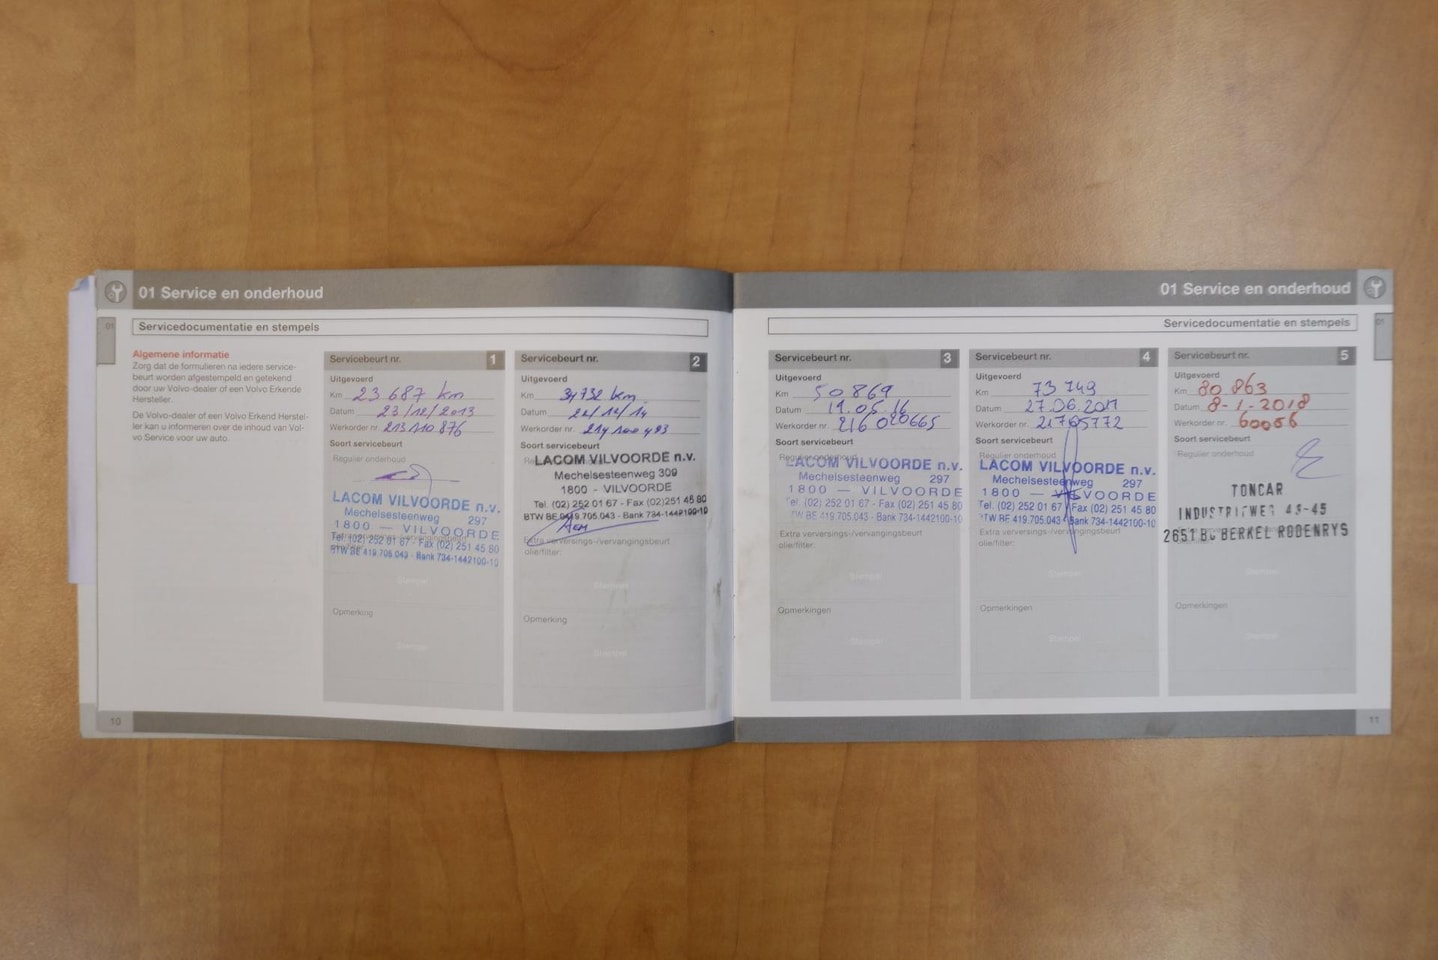 01 Service en onderhoud
Servicedocumentatie en stempels
01
Algemene informatie
Zorg dat de formulieren na iedere service-
beurt worden afgestempeld en getekend
door uw Volvo-dealer of een Volvo Erkende
Hersteller.
De Volvo-dealer of een Volvo Erkend Herstel-
ler kan u informeren over de inhoud van Vol-
vo Service voor uw auto.
Servicebeurt nr. 1
Uitgevoerd
Km 23 687 km
Datum 23/12/2013
Werkorder nr. 213110876
Soort servicebeurt
Regulier onderhoud
LACOM VILVOORDE n.v.
Mechelsesteenweg 297
1800 — VILVOORDE
Tel. (02) 252 01 67 - Fax (02) 251 45 80
BTW BE 419.705.043 - Bank 734-1442100-10
Stempel
Opmerking
Stempel
Servicebeurt nr. 2
Uitgevoerd
Km 34732 km.
Datum
Werkorder nr.
Soort servicebeurt
LACOM VILVOORDE n.v.
Mechelsesteenweg 309
1800 - VILVOORDE
Tel. (02) 252 01 67 - Fax (02)251 45 80
BTW BE 0419.705.043 - Bank 734-1442100-10
Extra verversings-/vervangingsbeurt
olie/filter:
Stempel
Opmerking
Stempel
10
01 Service en onderhoud
Servicedocumentatie en stempels
01
Servicebeurt nr. 3
Uitgevoerd
Km 50869
Datum 19.05.16
Werkorder nr. 216020665
Soort servicebeurt
Regulier onderhoud
LACOM VILVOORDE n.v.
Mechelsesteenweg 297
1800 — VILVOORDE
Tel. (02) 252 01 67 - Fax (02) 251 45 80
BTW BE 419.705.043 - Bank 734-1442100-10
Extra verversings-/vervangingsbeurt
olie/filter:
Stempel
Opmerkingen
Stempel
Servicebeurt nr. 4
Uitgevoerd
Km 73749
Datum 27.06.2017
Werkorder nr. 21705772
Soort servicebeurt
Regulier onderhoud
LACOM VILVOORDE n.v.
Mechelsesteenweg 297
1800 — VILVOORDE
Tel. (02) 252 01 67 - Fax (02) 251 45 80
BTW BE 419.705.043 - Bank 734-1442100-10
Extra verversings-/vervangingsbeurt
olie/filter:
Stempel
Opmerkingen
Stempel
Servicebeurt nr. 5
Uitgevoerd
Km 80 863
Datum 8-1-2018
Werkorder nr. 60056
Soort servicebeurt
Regulier onderhoud
TONCAR
INDUSTRIEWEG 43-45
2651 BC BERKEL RODENRYS
Stempel
Opmerkingen
Stempel
11